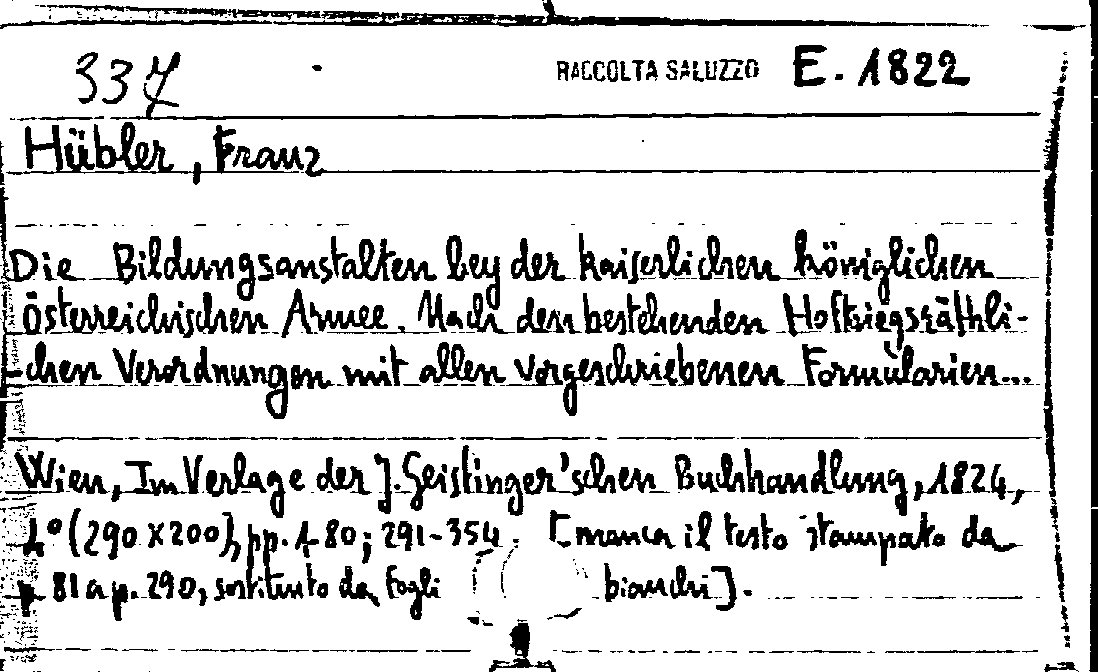 337 RACCOLTA SALUZZO E. 1822
Hübler, Franz
Die Bildungsanstalten bey der kaiserlichen königlichen
österreichischen Armee. Nach den bestehenden Hofkriegsräthli-
-chen Verordnungen mit allen vorgeschriebenen Formularien...
Wien, Im Verlage der J. Geistinger'schen Buchhandlung, 1824,
4° (290 x 200), pp. 1-80; 291-354. [manca il testo stampato da
p. 81 a p. 290, sostituito da fogli bianchi].